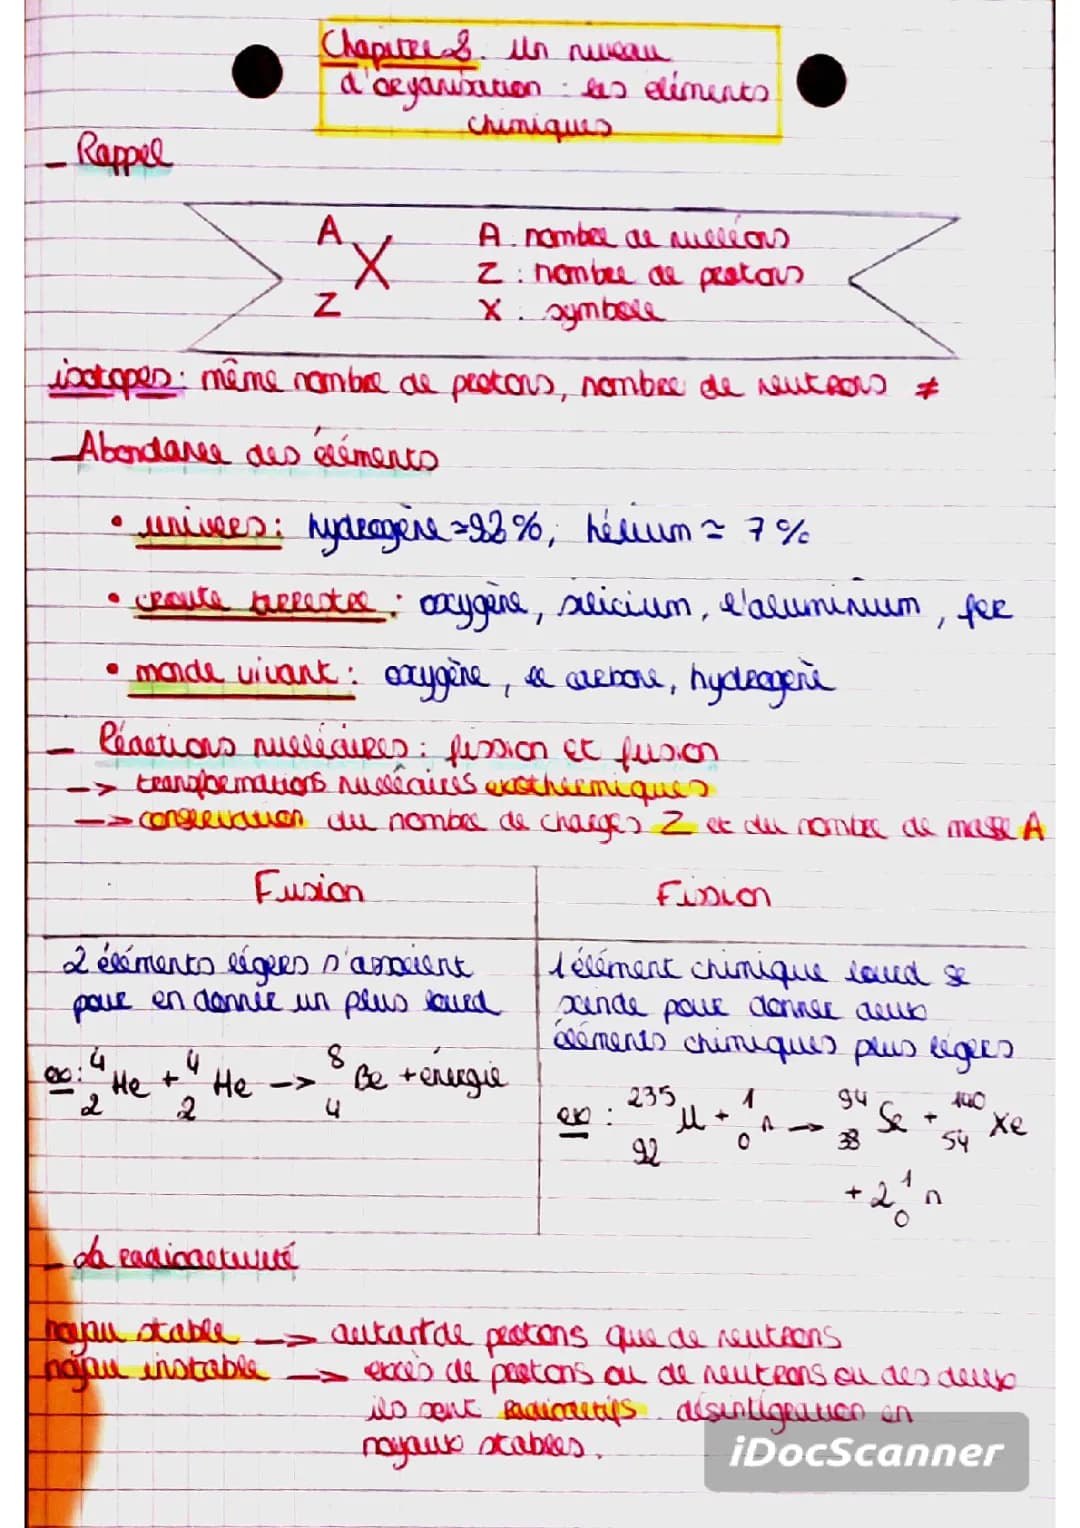 Chapitre 2. Un niveau
d'organisation : les éléments
chimiques
_ Rappel
A
X
Z
A. nombre de nucléons
Z : nombre de protons
X. symbole
isotopes : même nombre de protons, nombre de neutrons ≠
_ Abondance des éléments
• univers : hydrogène ≃ 92 %, hélium ≃ 7 %
• croute terrestre : oxygène, silicium, l'aluminium, fer
• monde vivant : oxygène, le carbone, hydrogène
_ Réactions nucléaires : fission et fusion
--> transformations nucléaires exothermiques
--> conservation du nombre de charges Z et du nombre de masse A
Fusion
2 éléments légers s'associent
pour en donner un plus lourd
ex : ⁴₂He + ⁴₂He --> ⁸₄Be + énergie
Fission
1 élément chimique lourd se
scinde pour donner deux
éléments chimiques plus légers
ex : ²³⁵₉₂U + ¹₀n --> ⁹⁴₃₈Se + ¹⁴⁰₅₄Xe
+ 2 ¹₀n
_ La radioactivité
noyau stable --> autant de protons que de neutrons
noyau instable --> excès de protons ou de neutrons ou des deux
ils sont radioactifs. désintégration en
noyaux stables.
iDocScanner